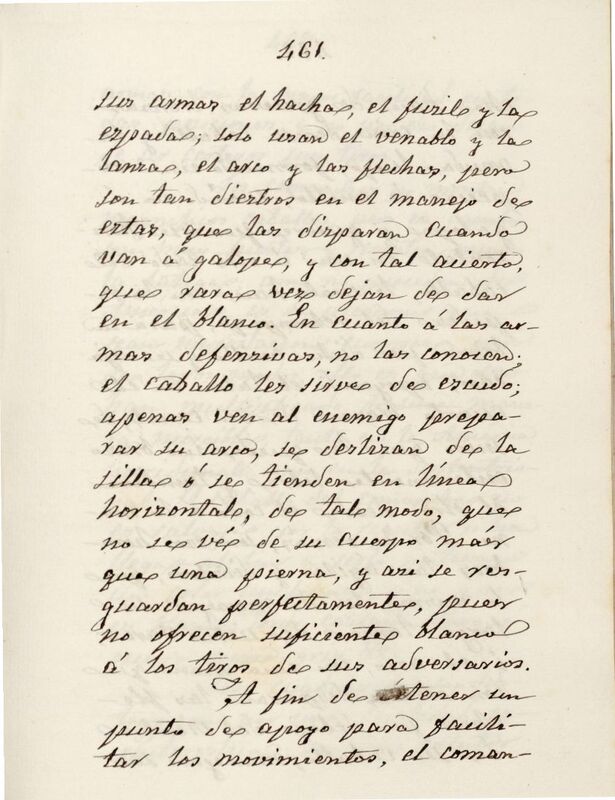 461.
sus armas el hacha, el fusil y la
espada; solo usan el venablo y la
lanza, el arco y las flechas, pero
son tan diestros en el manejo de
estas, que las disparan cuando
van á galope, y con tal acierto,
que rara vez dejan de dar
en el blanco. En cuanto á las ar-
mas defensivas, no las conocen;
el caballo les sirve de escudo;
apenas ven al enemigo prepa-
rar su arco, se deslizan de la
silla ó se tienden en línea
horizontal, de tal modo, que
no se vé de su cuerpo más
que una pierna, y asi se res-
guardan perfectamente, pues
no ofrecen suficiente blanco
á los tiros de sus adversarios.
A fin de tener un
punto de apoyo para facili-
tar los movimientos, el coman-